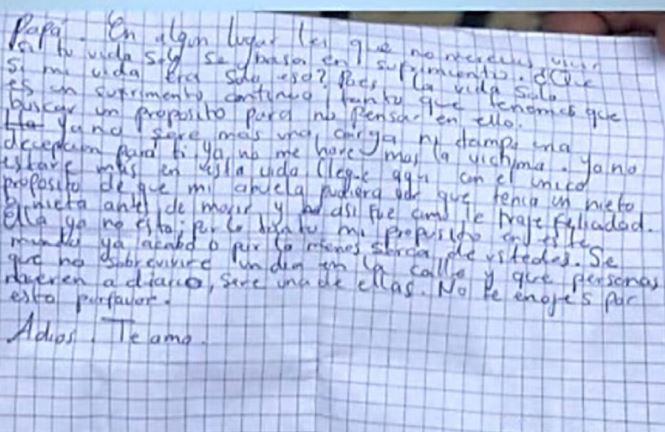 Papá. En algun lugar lei que no mereces vivir
si tu vida solo se basa en sufrimiento. ¿Que
si mi vida era solo eso? Pues la vida solo
es un sufrimento continuo tanto que tenemos que
buscar un proposito para no pensar en ello.
Ya no sere mas una carga ni tampo una
decepcion para ti, ya no me hare mas la victima. Ya no
estare mas en esta vida llegue aqui con el unico
proposito de que mi abuela pudiera que tenia un nieto
o nieta antes de morir y asi fue como le traje felicidad.
Ella ya no esta, por lo tanto mi proposito en este
mundo ya acabo o por lo menos serca de ustedes. Se
que no sobrevivire un dia en la calle y que personas
mueren a diario, sere una de ellas. No te enojes por
esto porfavor.
Adios. Te amo.